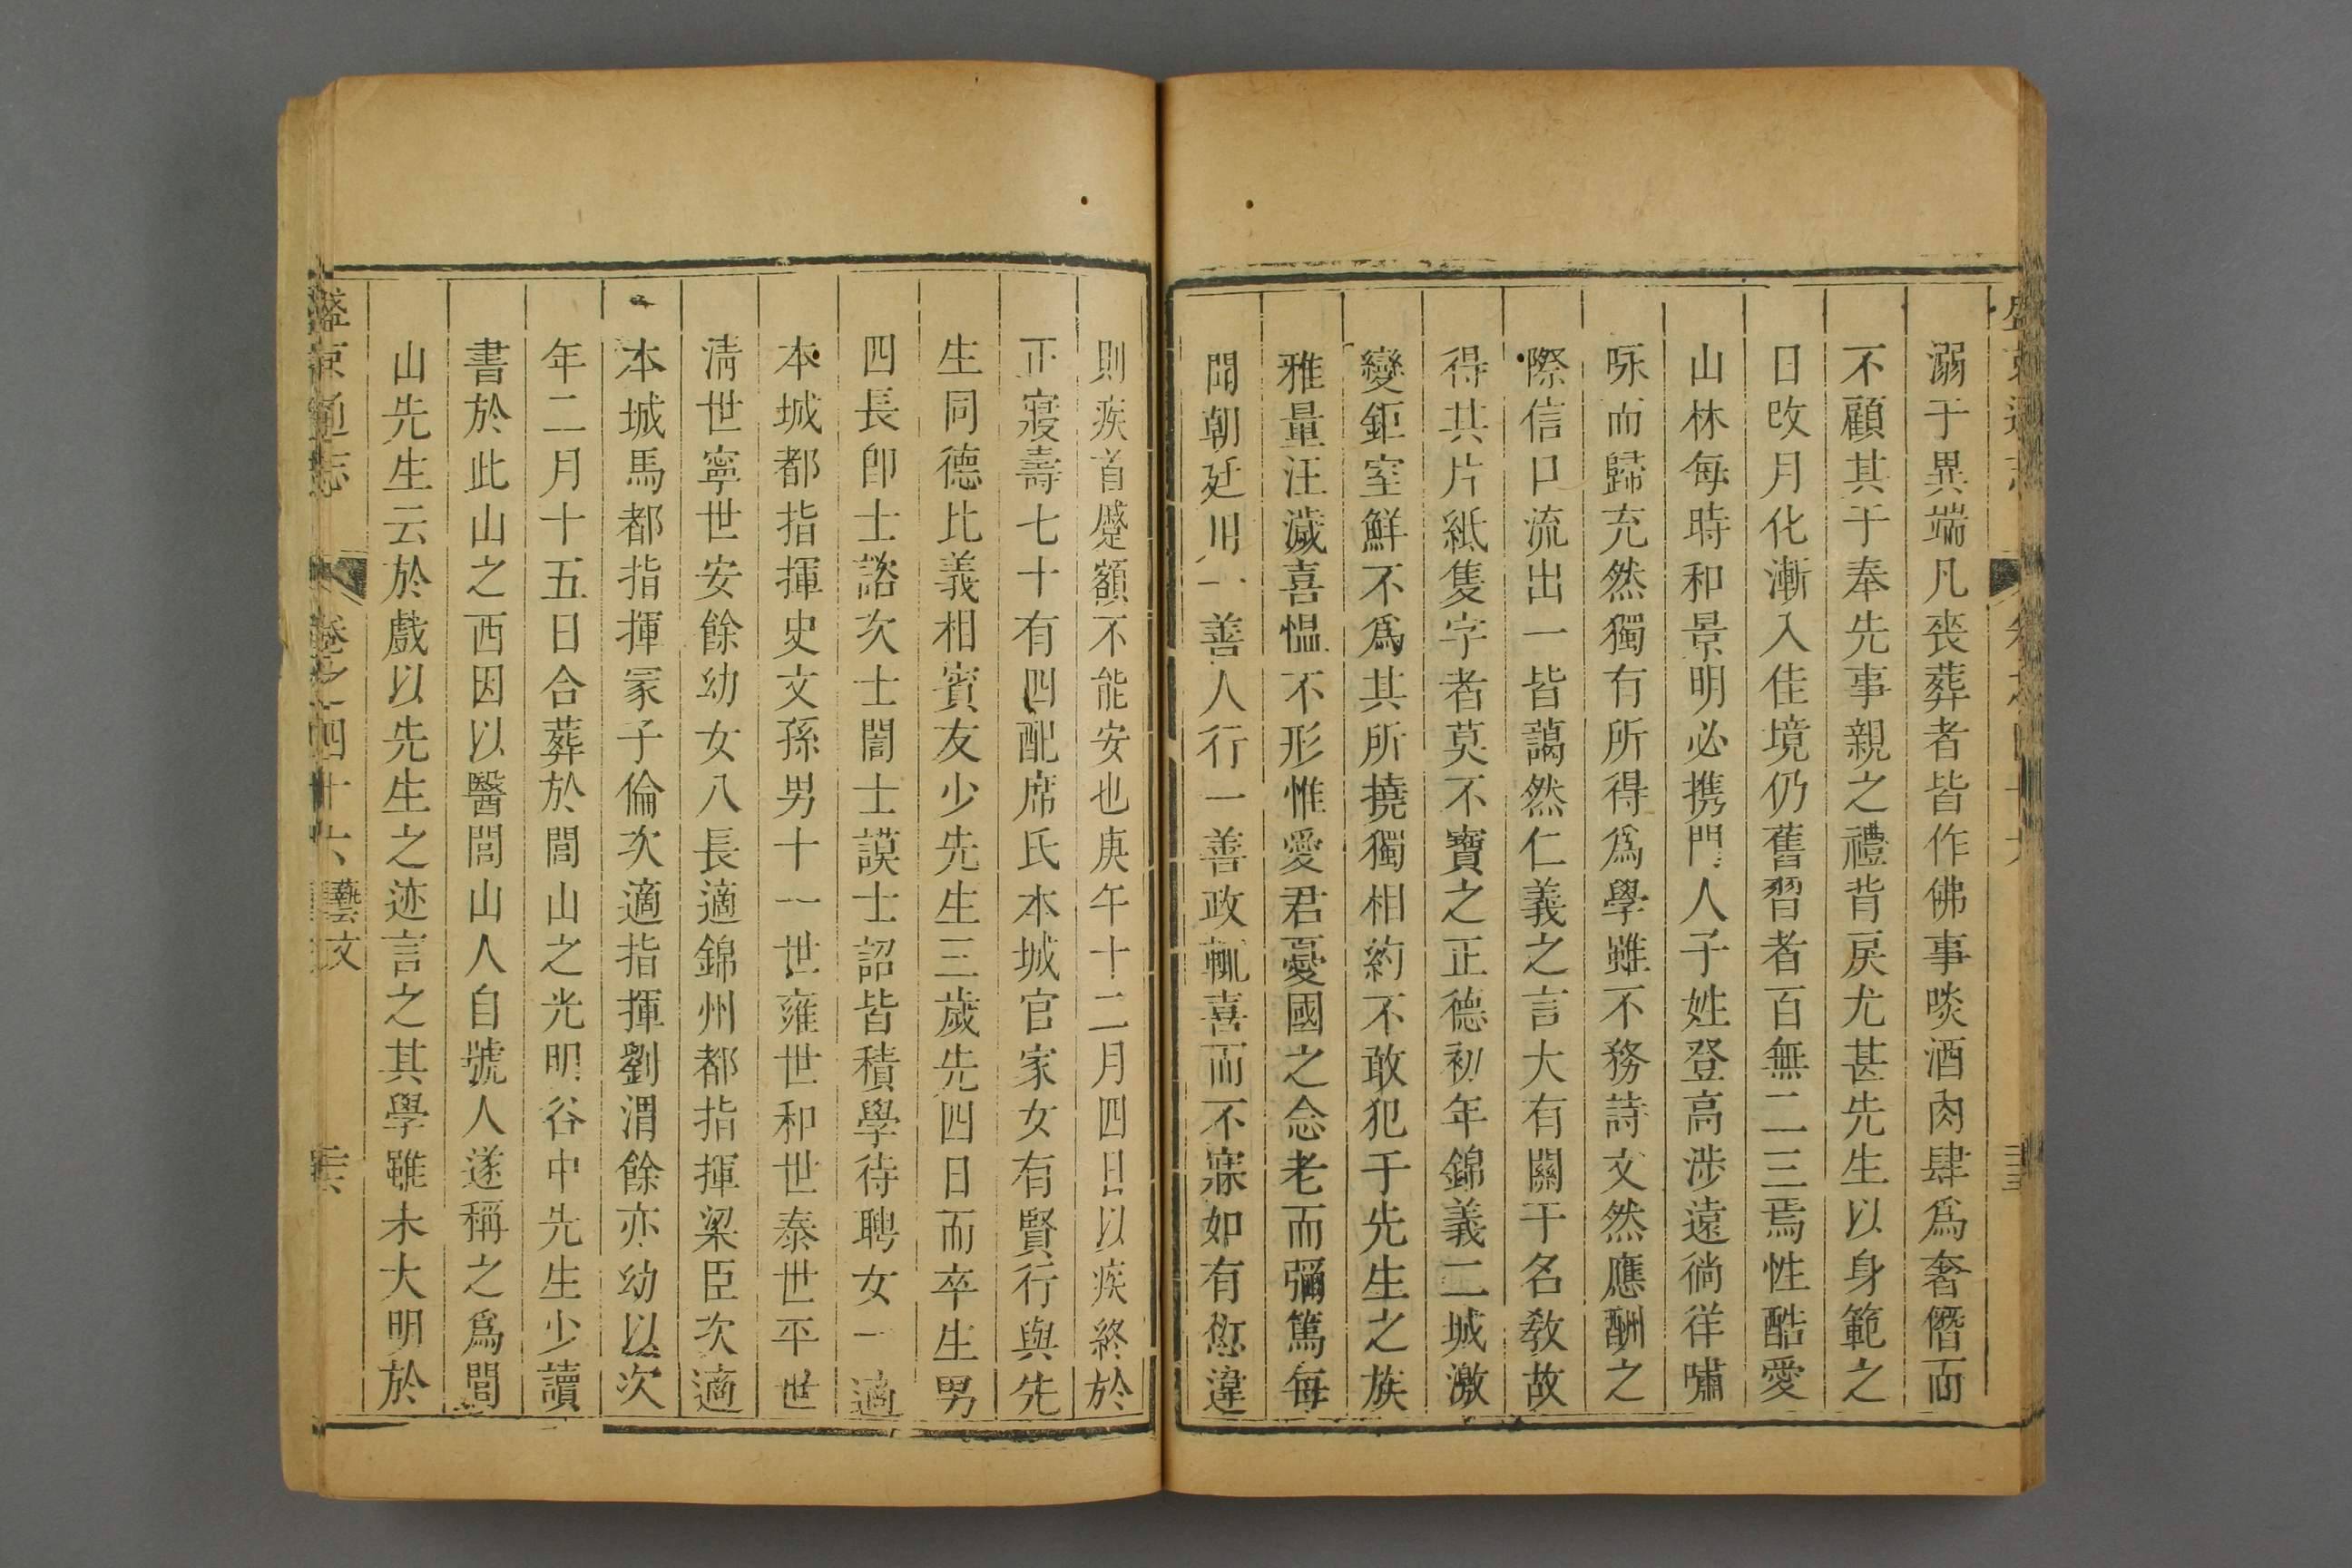 溺于異端凡喪葬者皆作佛事啖酒肉肆為奢僭而
不顧其于奉先事親之禮背戾尤甚先生以身範之
日改月化漸入佳境仍舊習者百無二三焉性酷愛
山林每時和景明必携門人子姓登高涉遠徜徉嘯
咏而歸充然獨有所得為學雖不務詩文然應酬之
際信口流出一皆藹然仁義之言大有關于名教故
得其片紙隻字者莫不寶之正德初年錦義二城激
變鉅室鮮不為其所撓獨相約不敢犯于先生之族
雅量汪濊喜愠不形惟愛君憂國之念老而彌篤每
聞朝廷用一善人行一善政輒喜而不寐如有愆違
則疾首蹙額不能安也庚午十二月四日以疾終於
正寢壽七十有四配席氏本城官家女有賢行與先
生同德比義相賓友少先生三歲先四日而卒生男
四長卽士諮次士誾士謨士詔皆積學待聘女一適
本城都指揮史文孫男十一世雍世和世泰世平世
淸世寧世安餘幼女八長適錦州都指揮梁臣次適
本城馬都指揮冢子倫次適指揮劉渭餘亦幼以次
年二月十五日合葬於閭山之光明谷中先生少讀
書於此山之西因以醫閭山人自號人遂稱之為閭
山先生云於戲以先生之迹言之其學雖未大明於
盛京通志 卷之四十六 藝文